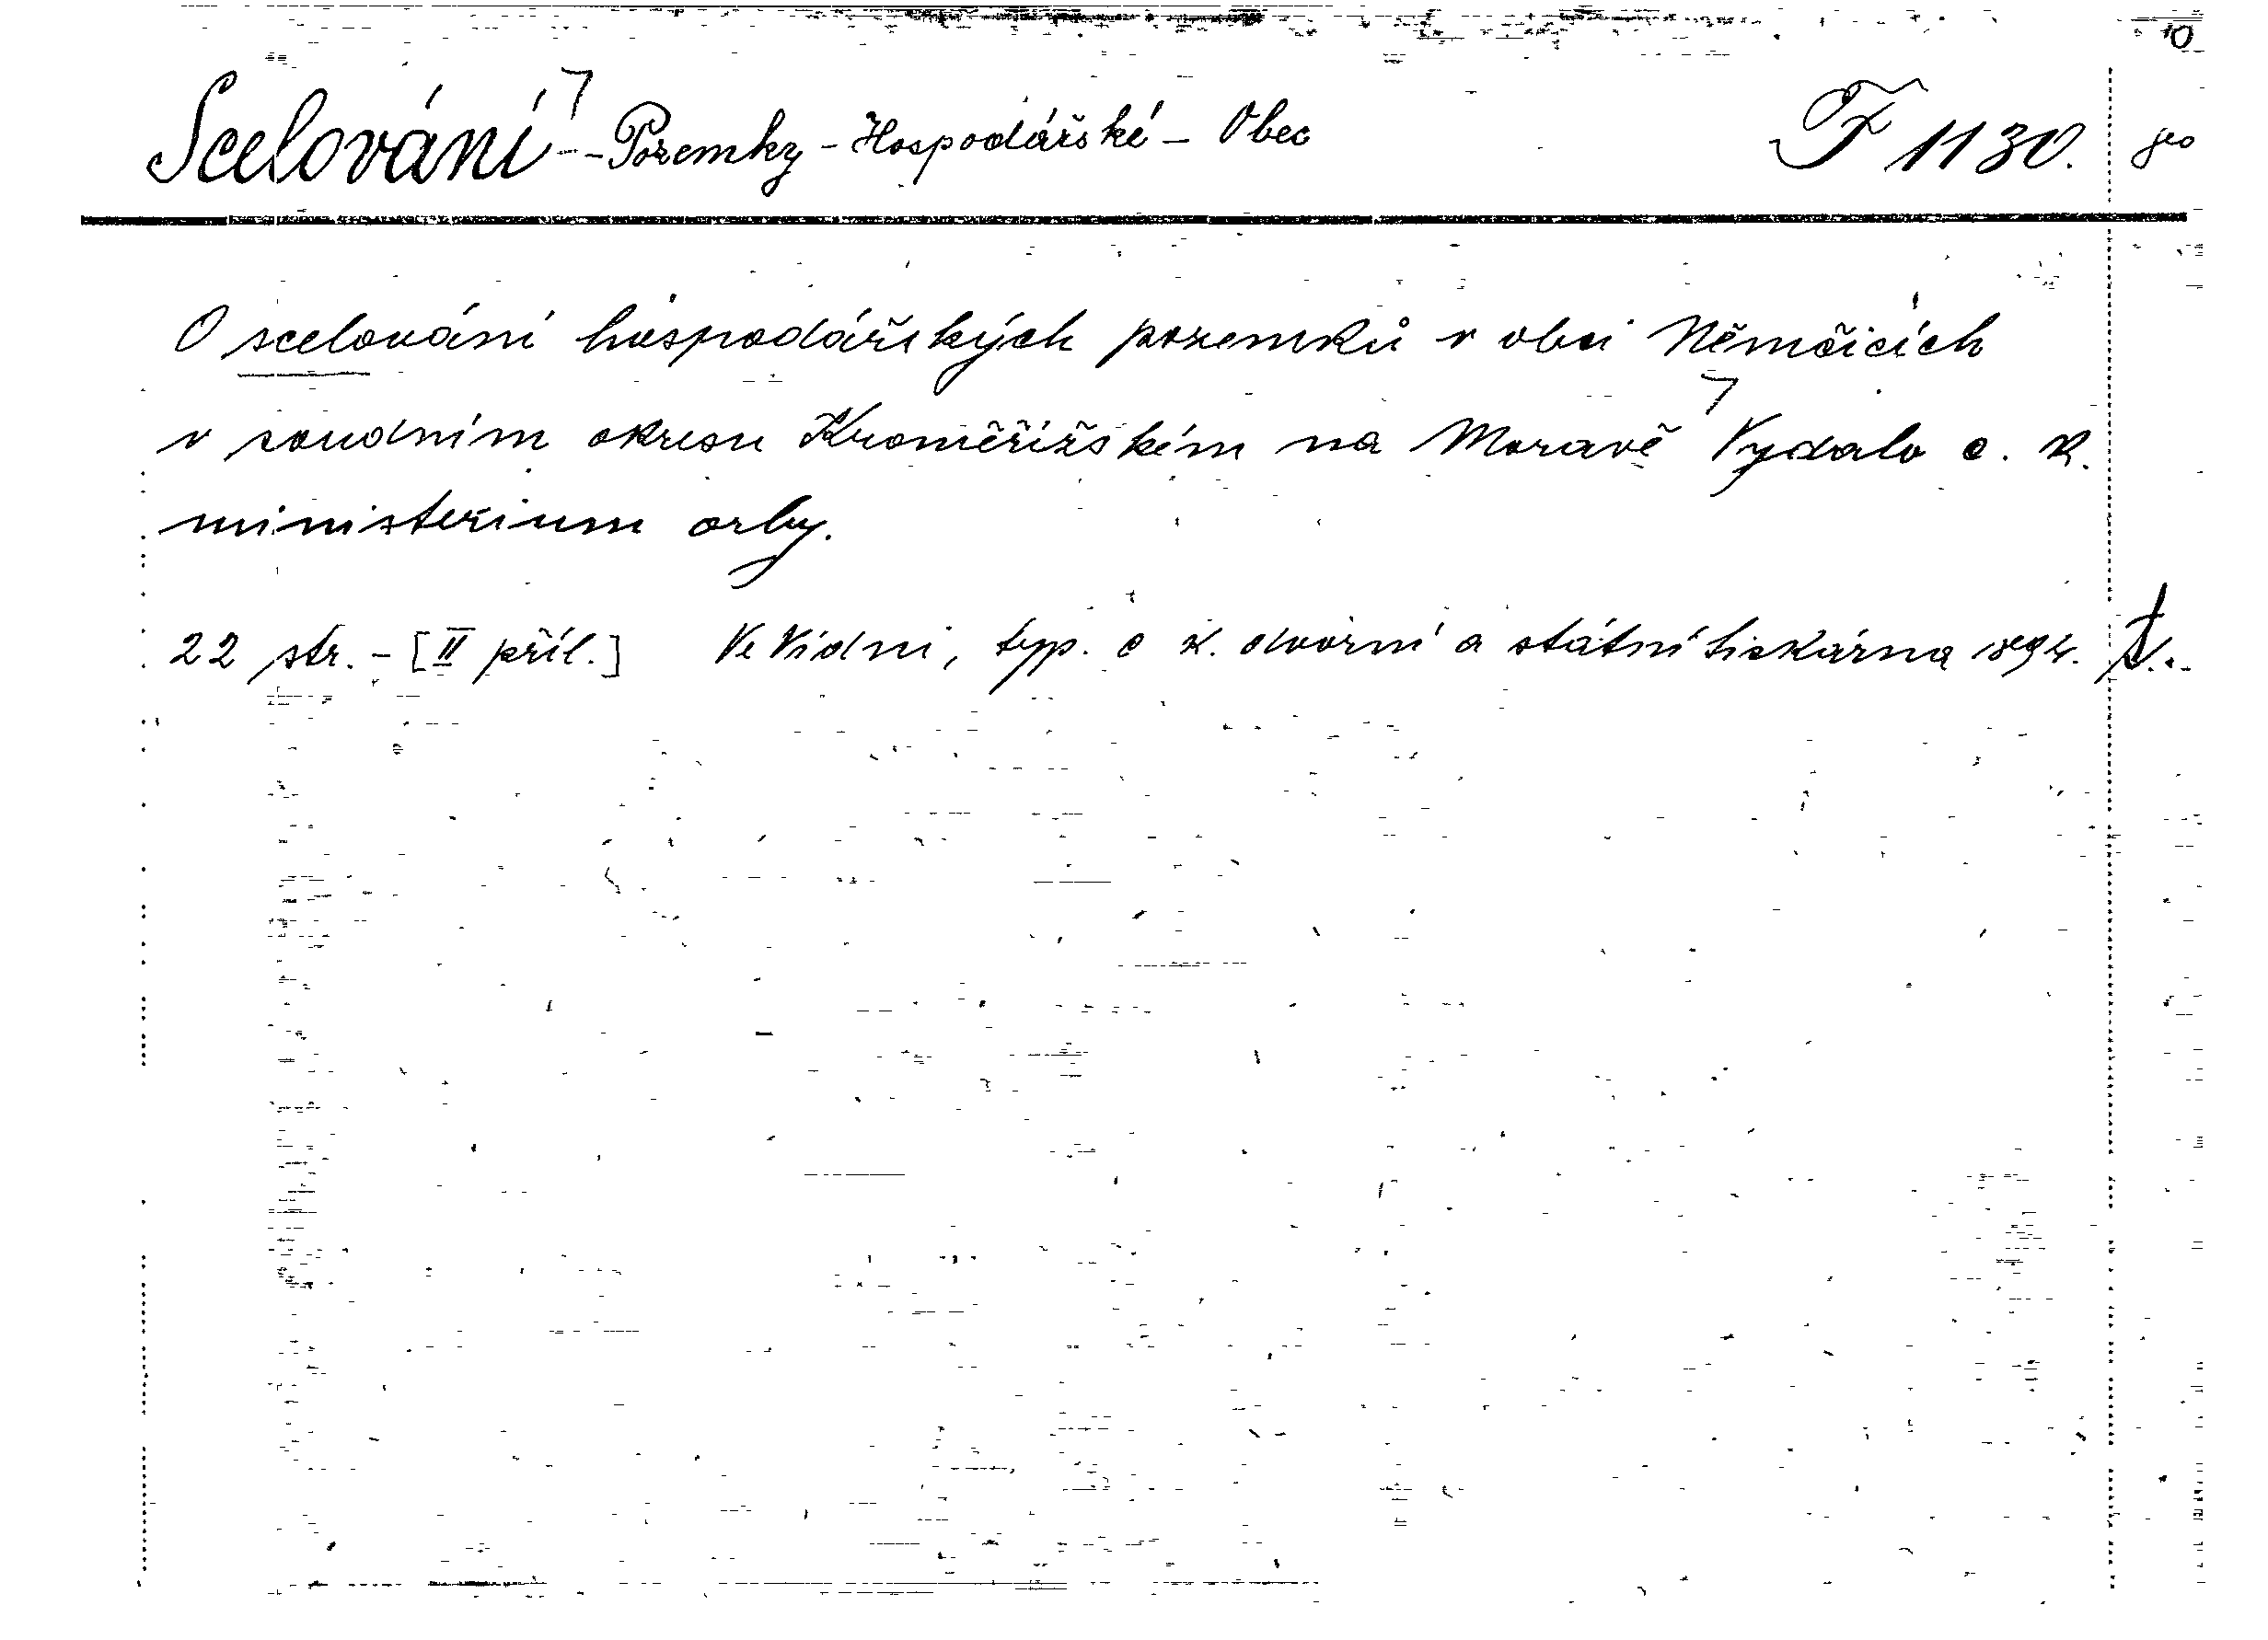 Scelování - - Pozemky - Hospodářské - Obec F 1130.
O scelování hospodářských pozemků v obci Němčicích
v soudním okresu Kroměřížském na Moravě Vydalo c. k.
ministerium orby.
22 str. - [II příl.] Ve Vídni, typ. c k. dvorní a státní tiskárna 1894.